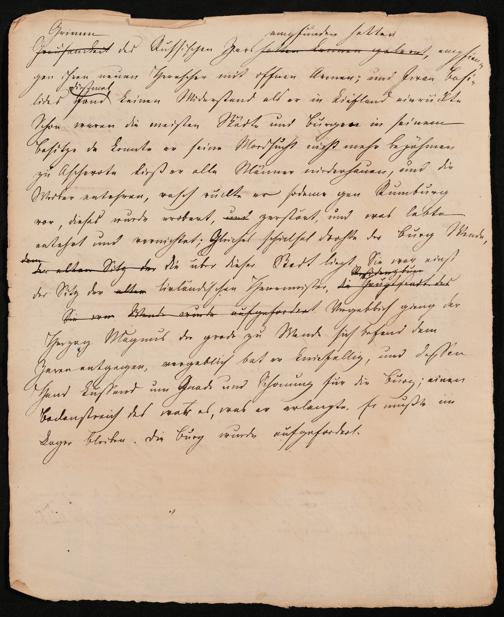 Grimm empfunden hatten
des Russischen Zars hatten kennen gelernt, empfin-
gen ihren neuen Herrscher mit offnen Armen; und Iwan Basi-
lides fand diesmal keinen Widerstand als er in Liefland einrückte
Schon waren die meisten Städte und Burgen in seinem
Besitze da konnte er seine Mordsucht nicht mehr bezähmen
zu Ascherote ließ er alle Männer niederhauen, und die
Weiber entehren, rasch rückte er sodann gen Kumburg
vor, dieses wurde erobert, und zerstört, und was lebte
entehrt und vernichtet; Gleiches Schicksal drohte der Burg Wende,
dem der alten Sitz der die über dieser Stadt liegt, Sie war einst
der Sitz der alten livländischen Heermeister, die Hauptstadt des
Sie von Wende wurde aufgefordert Vergeblich gieng der
Herzog Magnus der grade zu Wende sich befand dem
Zaren entgegen, vergeblich bat er kniefällig, und dessen
Hand küssend um Gnade und Schonung für die Burg; einen
Backenstreich das war es, was er erlangte. Er mußte im
Lager bleiben. Die Burg wurde aufgefordert.